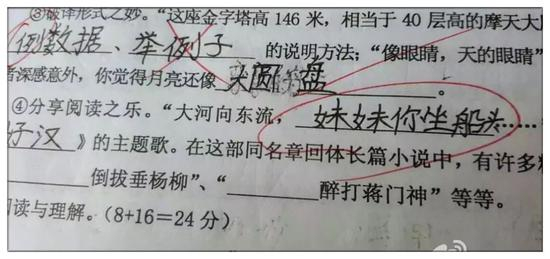 ③破译形式之妙。“这座金字塔高 146 米，相当于 40 层高的摩天大
例数据、举例子 的说明方法；“像眼睛，天的眼睛”
者深感意外，你觉得月亮还像 大圆盘 。
④分享阅读之乐。“大河向东流， 妹妹你坐船头……
好汉 》的主题歌。在这部同名章回体长篇小说中，有许多
倒拔垂杨柳”、“ 醉打蒋门神”等等。
阅读与理解。（8+16＝24 分）